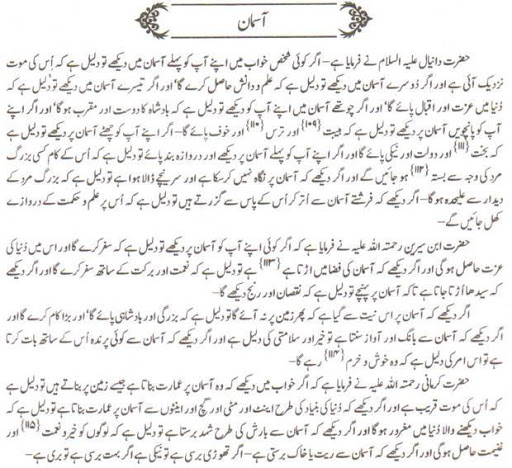 آسمان
حضرت دانیال علیہ السلام نے فرمایا ہے – اگر کوئی شخص خواب میں اپنے آپ کو پہلے آسمان میں دیکھے تو دلیل ہے کہ اُس کی موت
نزدیک آئی ہے اور اگر دُوسرے آسمان میں دیکھے تو دلیل ہے کہ علم و دانش حاصل کرے گا' اور اگر تیسرے آسمان میں دیکھے تو دلیل ہے کہ
دُنیا میں عزت اور اقبال پائے گا' اور اگر چوتھے آسمان میں اپنے آپ کو دیکھے تو دلیل ہے کہ بادشاہ کا دوست اور مقرب ہو گا' اور اگر اپنے
آپ کو پانچویں آسمان پر دیکھے تو دلیل ہے کہ ہیبت {۱۰۹} اور ترس {۱۱۰} اور خوف پائے گا – اگر اپنے آپ کو چھٹے آسمان پر دیکھے تو دلیل ہے
کہ بخت {۱۱۱} اور دولت اور نیکی پائے گا اور اگر اپنے آپ کو پہلے آسمان پر دیکھے اور دروازہ بند پائے تو دلیل ہے کہ اُس کے کام کسی بزرگ
مرد کی وجہ سے بستہ {۱۱۲} ہو جائیں گے اور اگر دیکھے کہ آسمان پر نگاہ نہیں کر سکتا ہے اور سر نیچے ڈالا ہوا ہے تو دلیل ہے کہ بزرگ مرد کے
دیدار سے علیحدہ ہو گا – اگر دیکھے کہ فرشتے آسمان سے اُتر کر اُس کے پاس سے گزرتے ہیں تو دلیل ہے کہ اُس پر علم و حکمت کے دروازے
کھل جائیں گے –
حضرت ابن سیرین رحمتہ اللہ علیہ نے فرمایا ہے کہ اگر کوئی اپنے آپ کو آسمان پر دیکھے تو دلیل ہے کہ سفر کرے گا اور اس میں دُنیا کی
عزت حاصل ہو گی اور اگر دیکھے کہ آسمان کی فضا میں اڑتا ہے {۱۱۳} ہے تو دلیل ہے کہ نعمت اور برکت کے ساتھ سفر کرے گا اور اگر دیکھے
کہ سیدھا اُڑتا جاتا ہے تاکہ آسمان پر پہنچے تو دلیل ہے کہ نقصان اور رنج دیکھے گا –
اگر دیکھے کہ آسمان پر اس نیت سے گیا ہے کہ پھر زمین پر نہ آئے گا تو دلیل ہے کہ بزرگی اور بادشاہی پائے گا' اور بڑا کام کرے گا اور
اگر دیکھے کہ آسمان سے بانگ اور آواز سنتا ہے تو خیر اور سلامتی کی دلیل ہے اور اگر دیکھے کہ آسمان سے کوئی پرندہ اُس کے ساتھ بات کرتا
ہے تو اس امر کی دلیل ہے کہ وہ خوش و خرم {۱۱۴} رہے گا –
حضرت کرمانی رحمتہ اللہ علیہ نے فرمایا ہے کہ اگر خواب میں دیکھے کہ وہ آسمان پر عمارت بناتا ہے جیسے زمین پر بناتے ہیں تو دلیل ہے
کہ اُس کی موت قریب ہے اور اگر دیکھے کہ دُنیا کی بنیاد کی طرح اینٹ اور مٹی اور گچ اور اینٹوں سے آسمان پر عمارت بناتا ہے تو دلیل ہے کہ
خواب دیکھنے والا دُنیا میں مغرور ہو گا اور اگر دیکھے کہ آسمان سے بارش کی طرح شہد برستا ہے تو دلیل ہے کہ لوگوں کو خیر و نعمت {۱۱۵} اور
غنیمت حاصل ہو گی اور اگر دیکھے کہ آسمان سے ریت یا خاک برستی ہے – اگر تھوڑی برسی ہے تو نیکی ہے اگر بہت برسی ہے تو بری ہے –